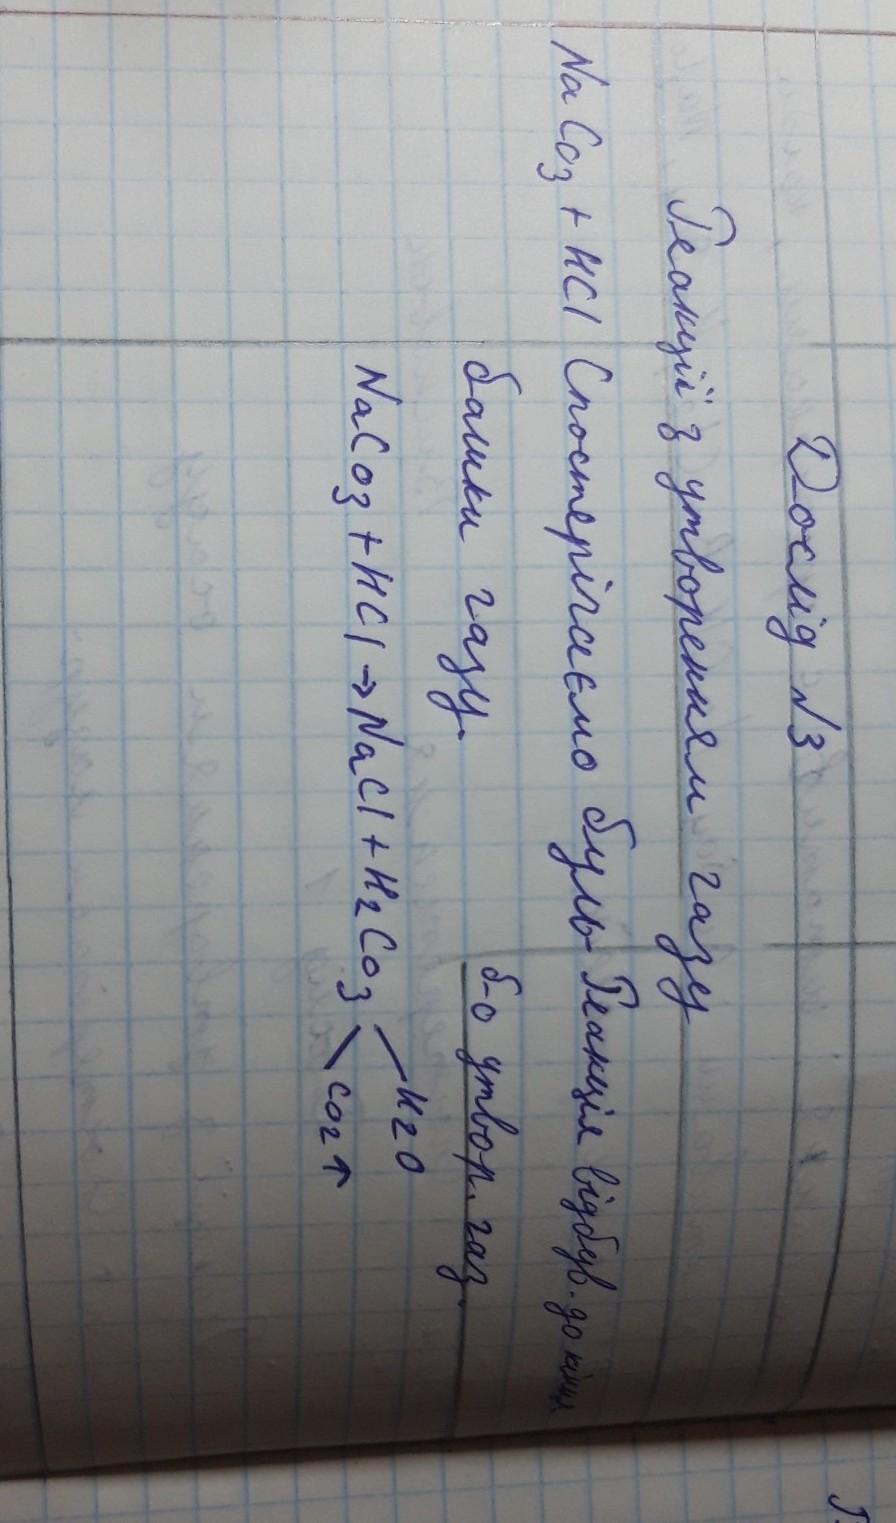 Дослід №3
Реакції з утворенням газу
NaCo3 + HCl Спостерігаємо буль- Реакція відбув. до кінця
башки газу. б-о утвор. газ.
NaCo3 + HCl → NaCl + H2Co3
H2O
Co2 ↑